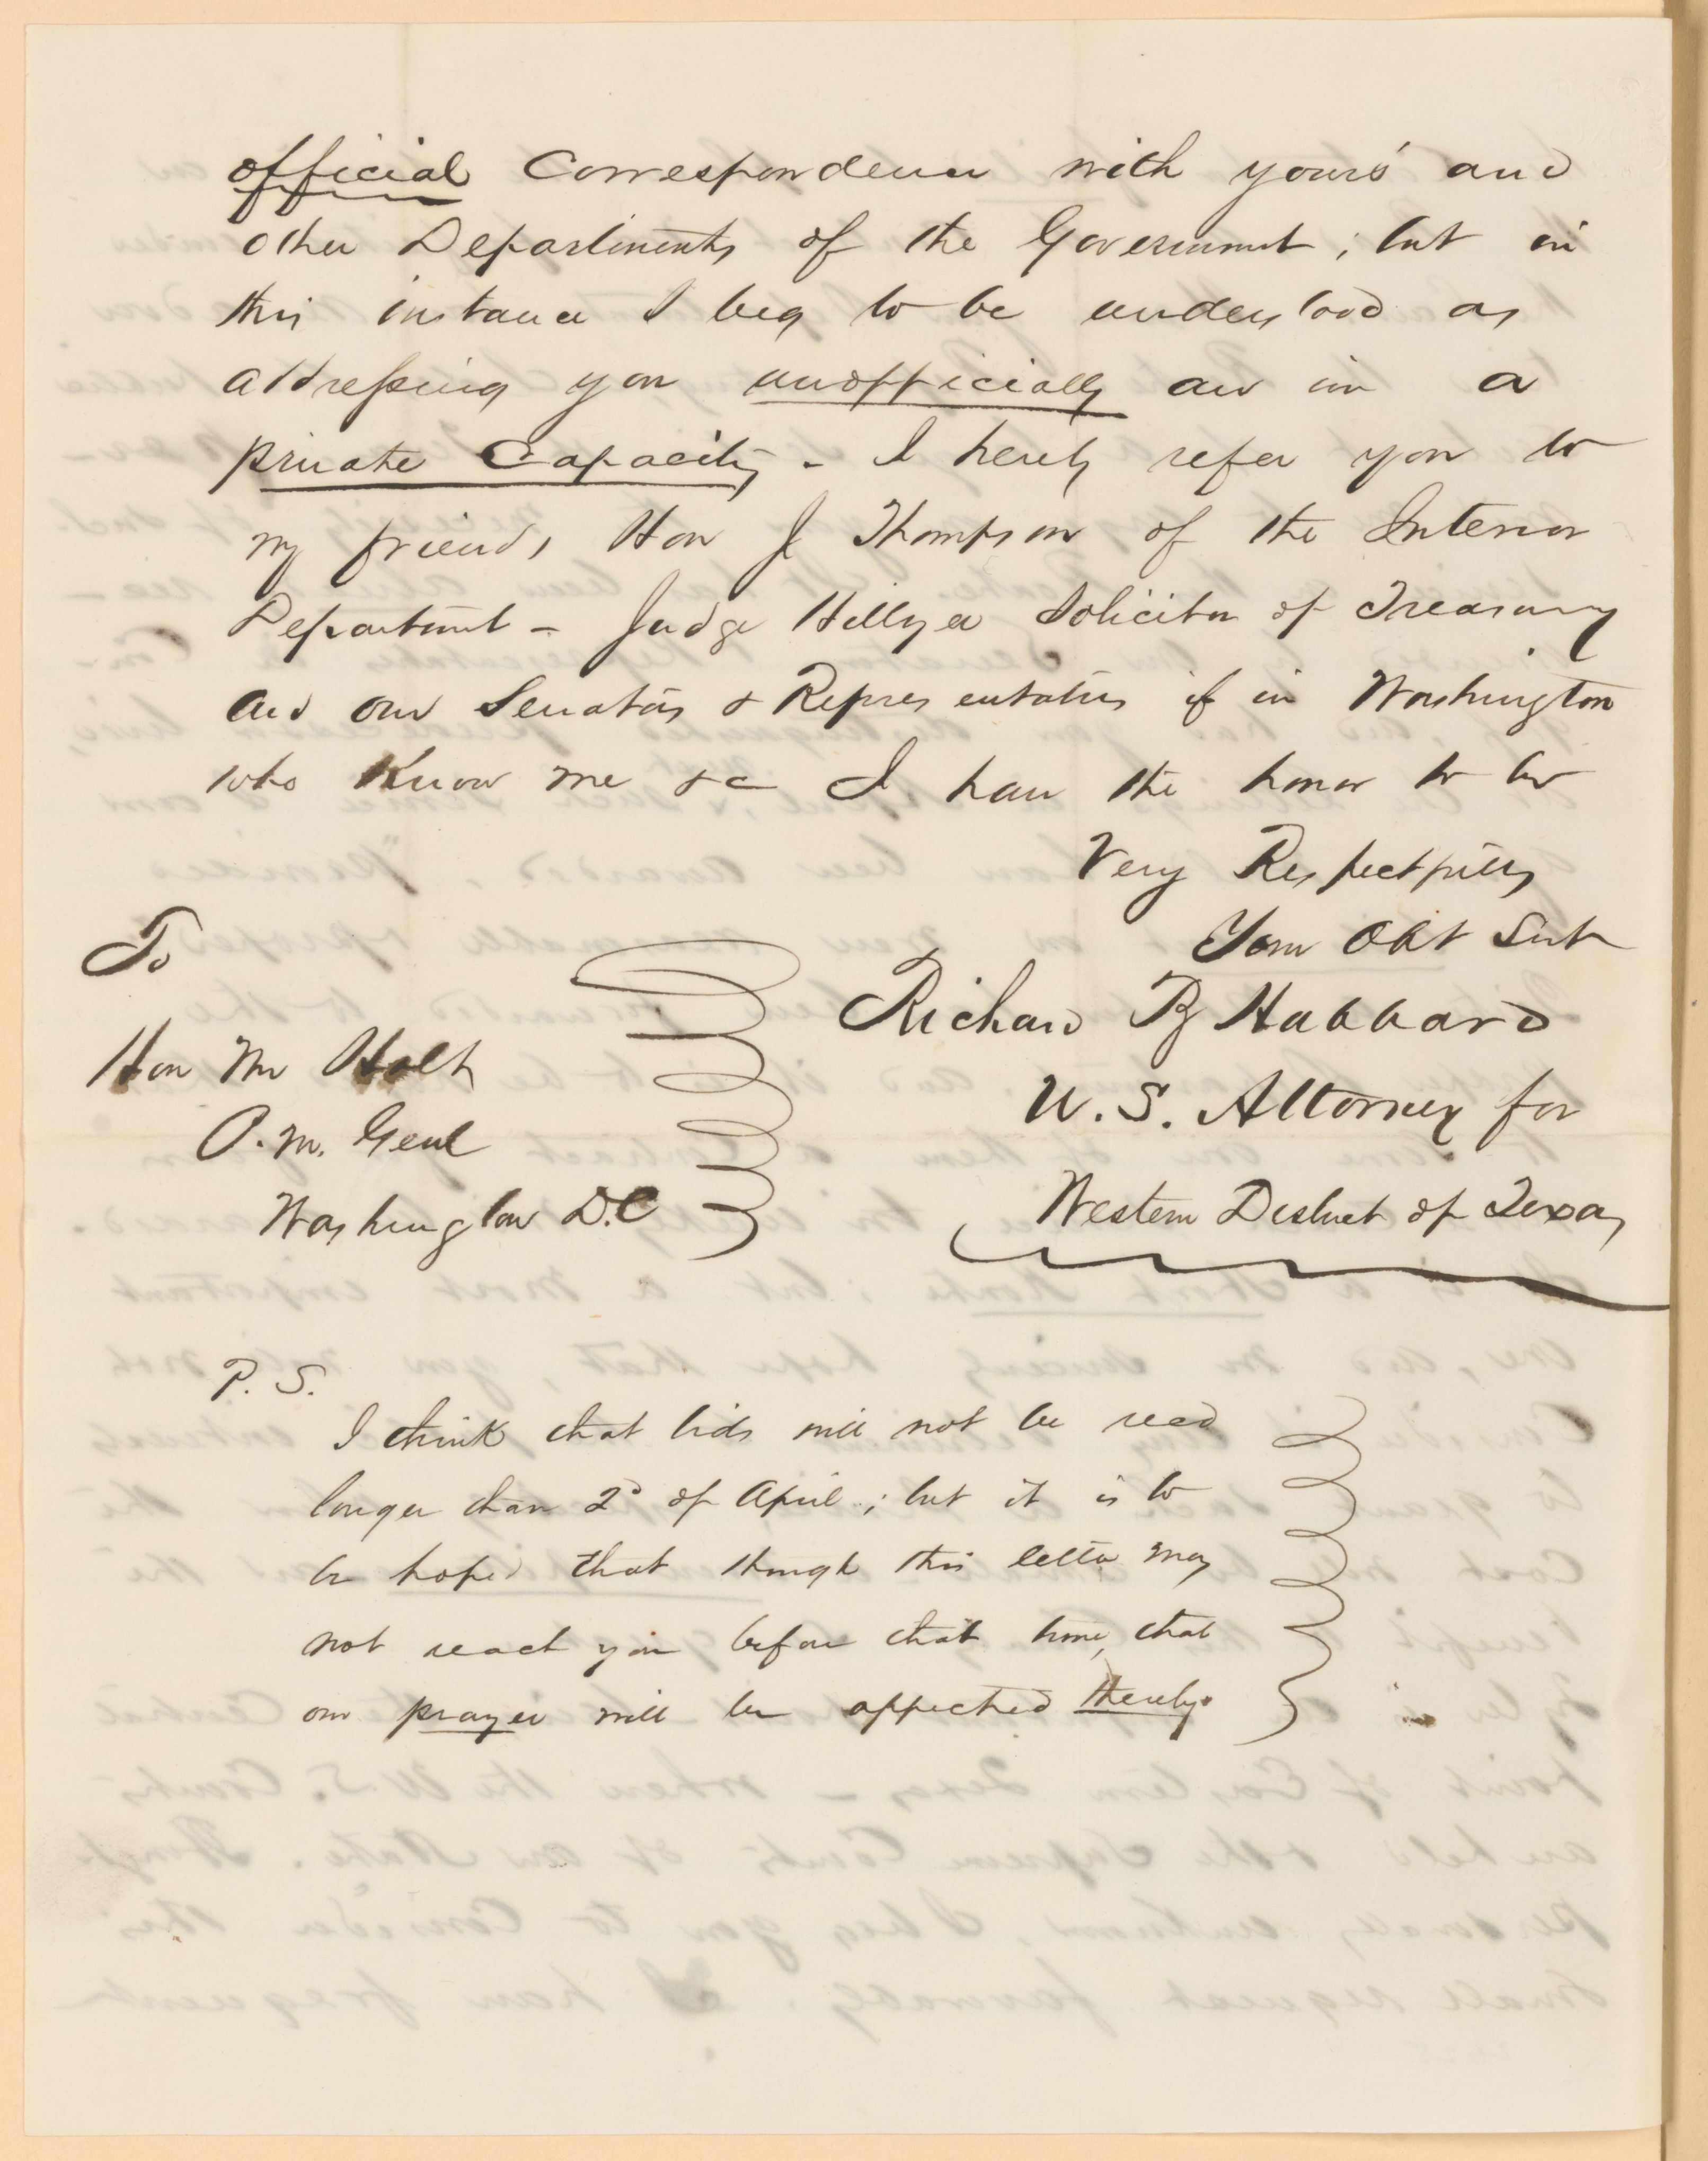 official Correspondence with yours' and
other Departments of the Government; but in
this instance I beg to be understood as
addressing you unofficially and in a
private Capacity - I hereby refer you to
my friends Hon J Thompson of the Interior
Department - Judge Hillyer Solicitor of Treasury
and our Senators & Representatives if in Washington
who know me &c I have the honor to be
Very Respectfully
Your Obt Svt
Richard B Hubbard
U.S. Attorney for
Western District of Texas
To
Hon Mr Holt
P.M. Genl
Washington D.C
P.S.
I think that bids will not be read
longer than 2d of April; but it is to
be hoped that though this letter may
not reach you before that time, that
our prayer will be affected thereby.